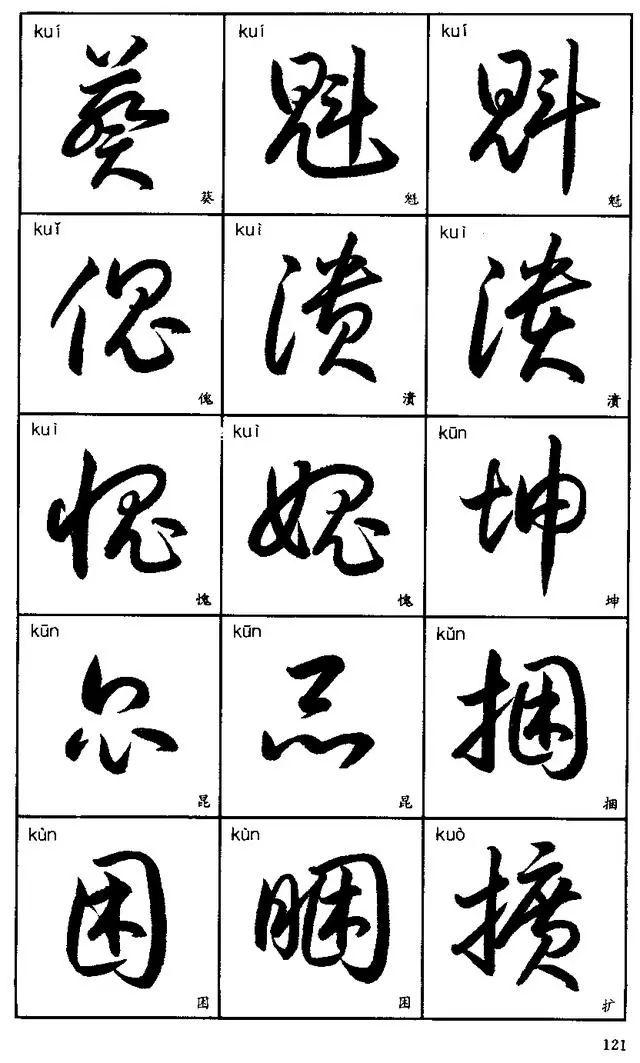 kuí kuí kuí
葵 魁 魁
葵 魁 魁
kuǐ kuì kuì
傀 潰 潰
傀 溃 溃
kuì kuì kūn
愧 媿 坤
愧 愧 坤
kūn kūn kǔn
昆 昆 捆
昆 昆 捆
kùn kùn kuò
困 睏 擴
困 困 扩
121